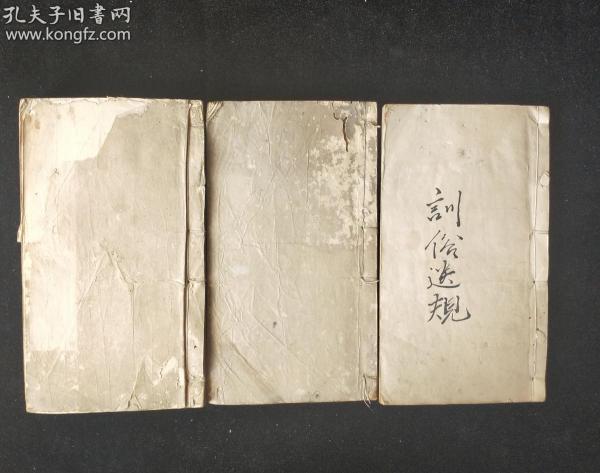 孔夫子旧书网
www.kongfz.com
訓俗遗規